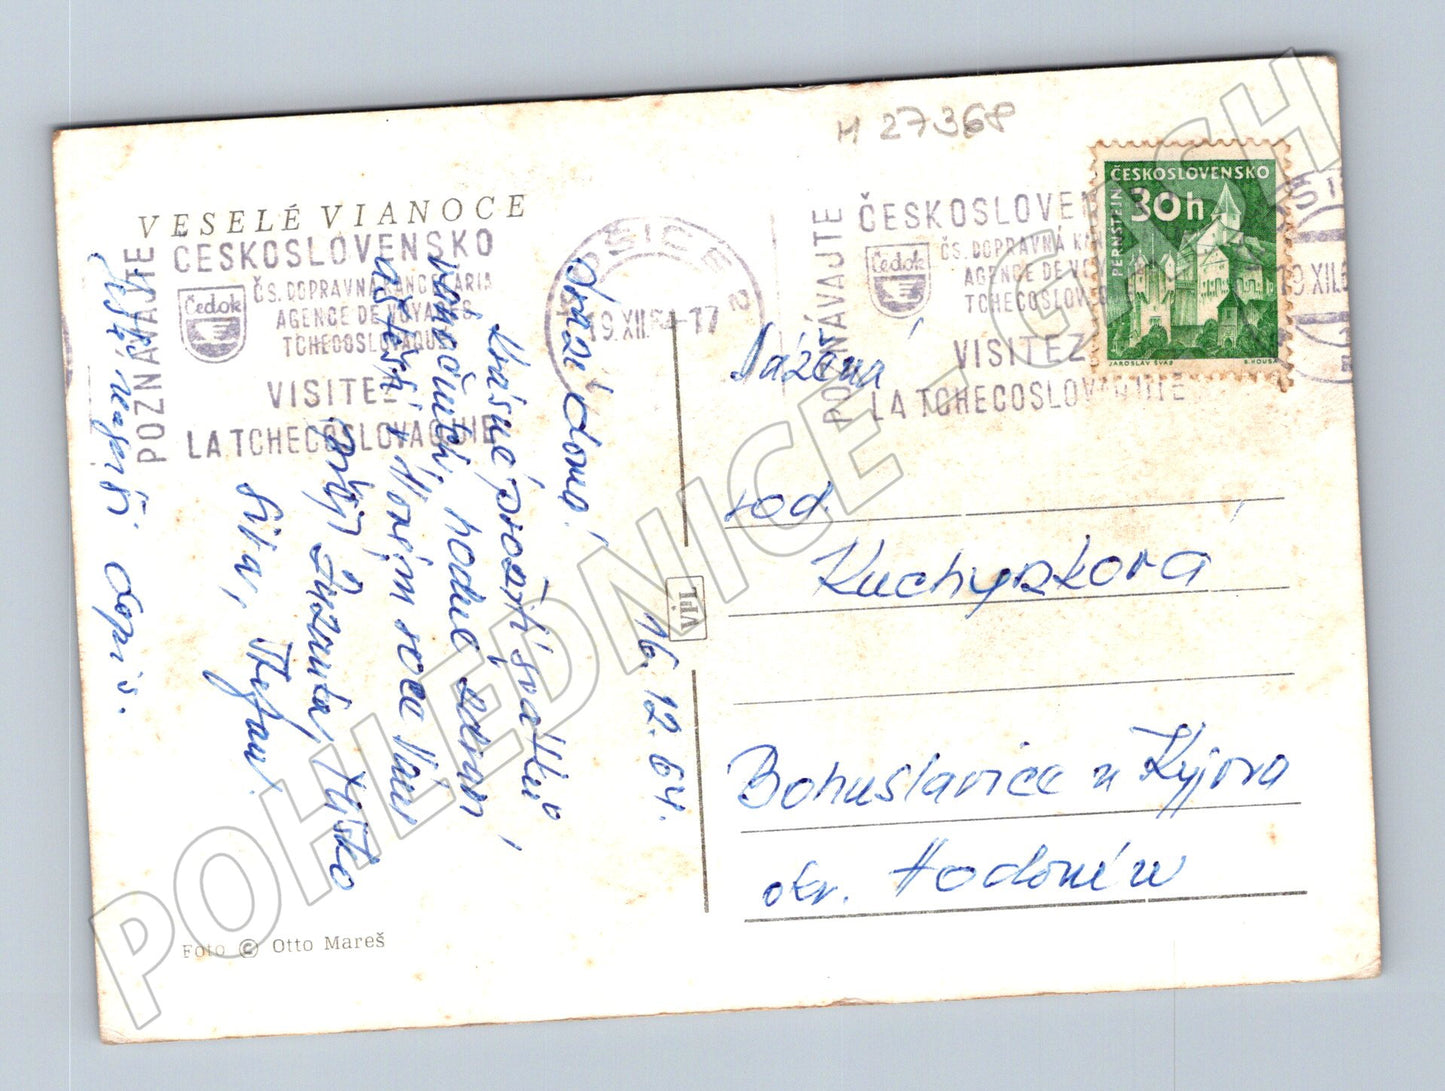 M 27368
VESELÉ VIANOCE
POZNÁVAJTE
ČESKOSLOVENSKO
Čedok
ČS. DOPRAVNÁ KANCELÁRIA
AGENCE DE VOYAGES
TCHECOSLOVAQUE
VISITEZ
LA TCHECOSLOVAQUIE
KOŠICE 2
19.XII.64-17
POZNÁVAJTE
ČESKOSLOVE
Čedok
ČS. DOPRAVNÁ K
AGENCE DE VOY
TCHECOSLOV
VISITEZ
LA TCHECOSLOVAQUIE
19.XII.6
ČESKOSLOVENSKO
30h
PERNŠTEJN
JAROSLAV ŠVÁB
B. HOUSA
16. 12. 64.
Drazí doma!
Krásné prožití svátků
vánočních, hodně
v Novém roce Vám
Zuzanka, Miško
Štefan
Vážená
rod.
Kuchyňková
Bohuslavice u Kyjova
okr. Hodonín
VPL
Foto © Otto Mareš
POHLEDNICE-CZ.SH